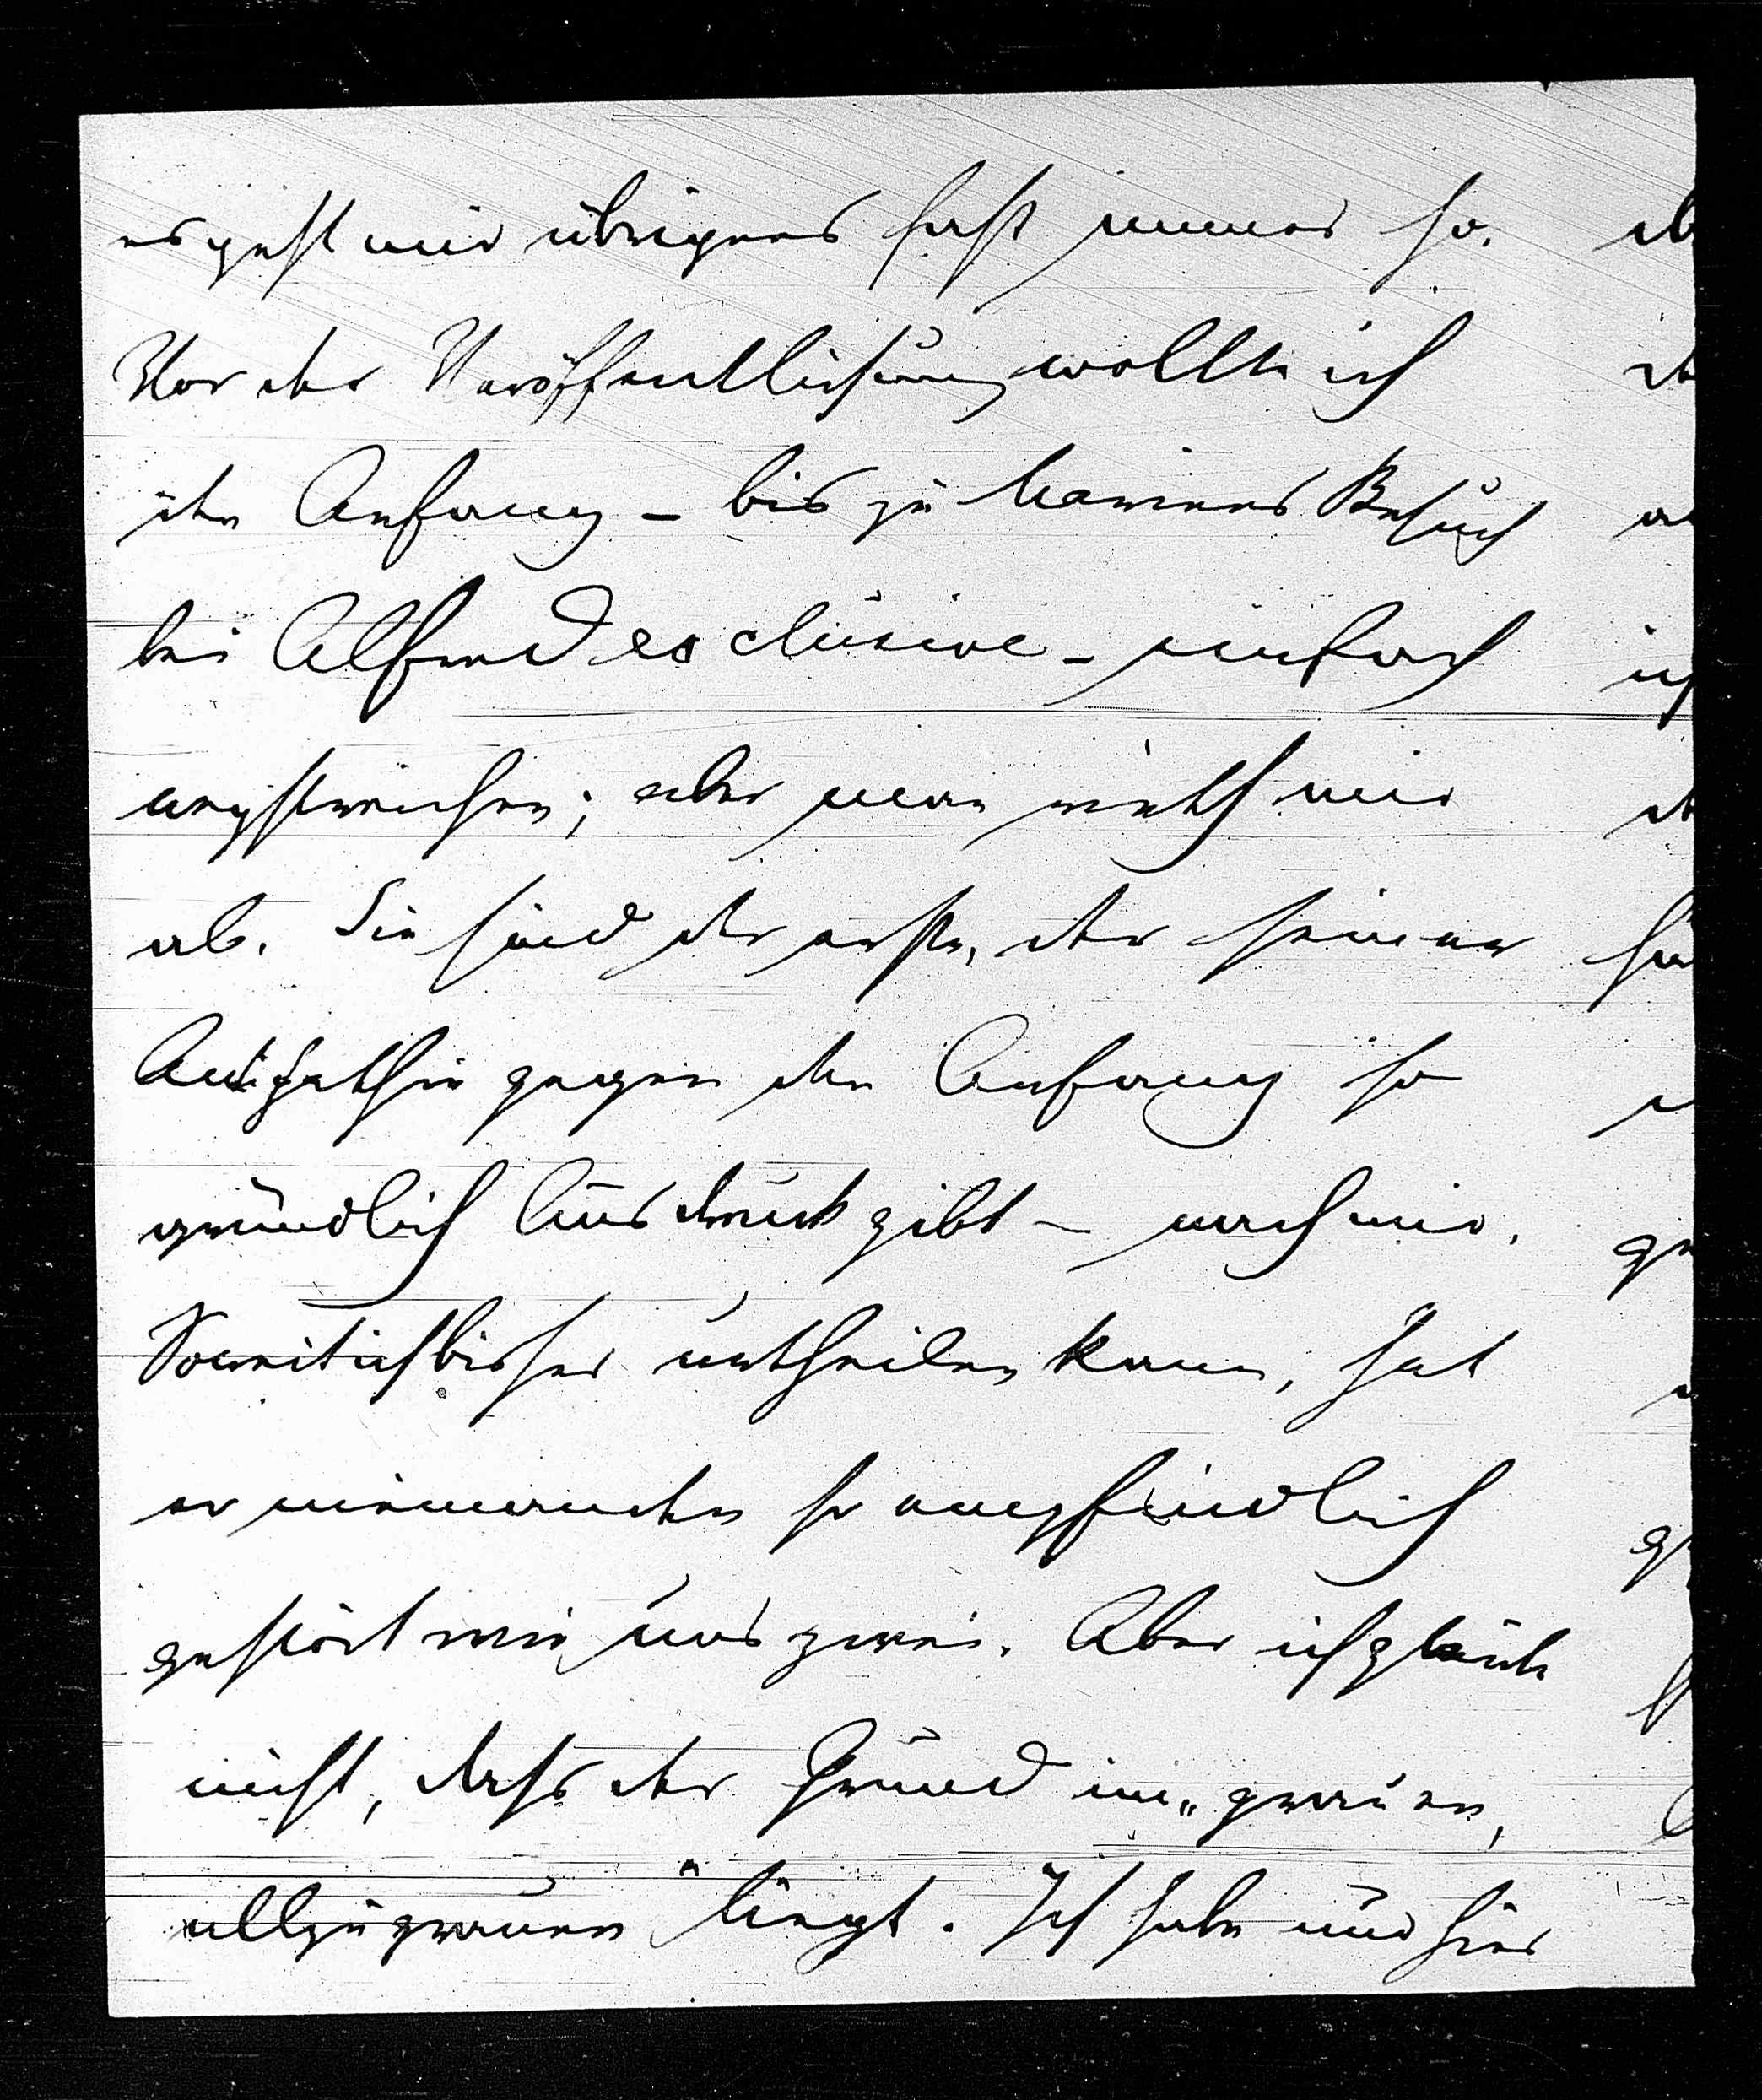 es geht mir übrigens fast immer so.
Vor der Veröffentlichung wollte ich
den Anfang – bis zu Besuch
bei Alfred exclusive – einfach
wegstreichen; aber man rieth mir
ab. Sie sind der erste, der seiner
Antipathie gegen den Anfang so
gründlich Ausdruck gibt – nach mir.
Soweit ich bisher urtheilen kann, hat
er niemanden so empfindlich
gestört wie uns zwei. Aber ich glaube
nicht, dass der Grund im „grauen,
allzugrauen“ liegt. Ich habe nur hier